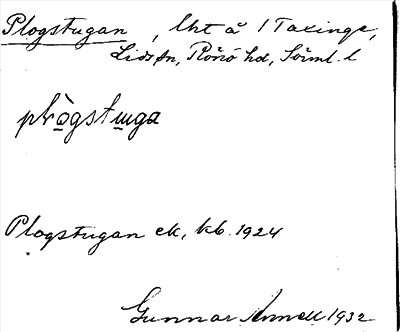 Plogstugan, lht å 1 Taxinge,
Lids sn, Rönö hd, Sörml. l
plògstuga
Plogstugan ek, kb. 1924
Gunnar Annell 1932